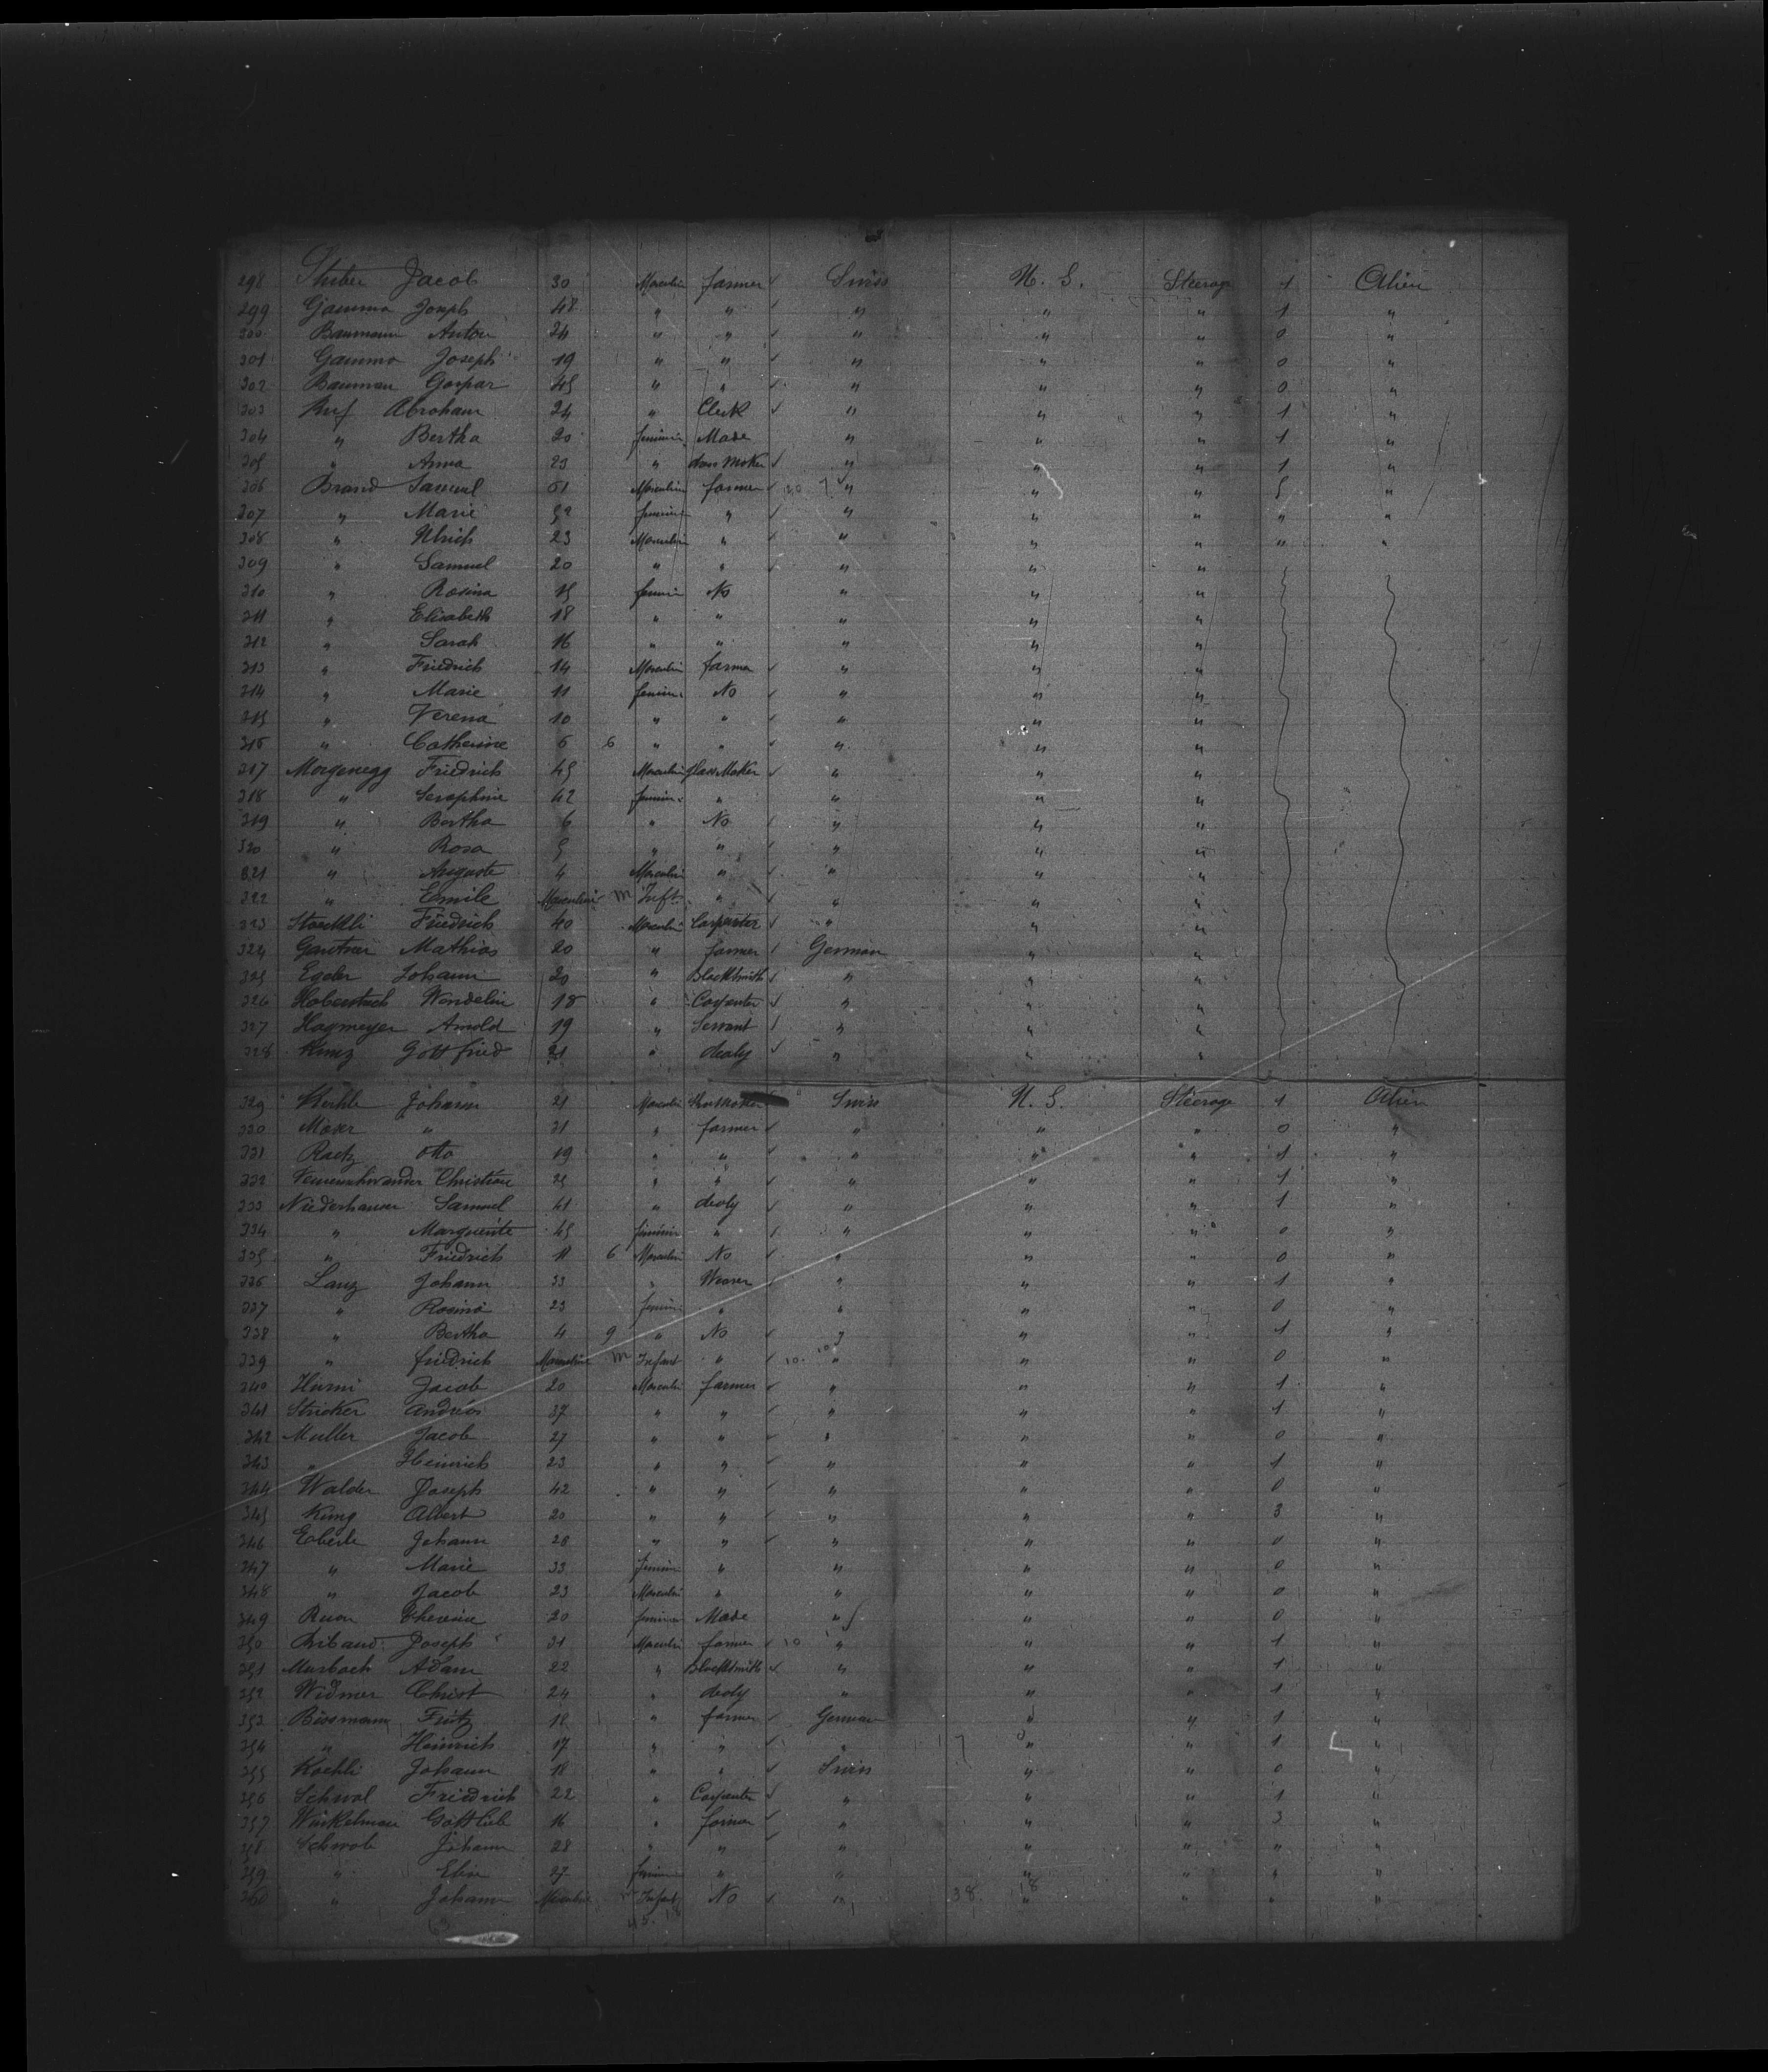 298 Stuber Jacob 30 Masculin farmer Swiss U. S. Steerage 1 Alien
299 Gamma Joseph 48 " " " " " 1 "
300 Baumann Anton 24 " " " " " 0 "
301 Gamma Joseph 19 " " " " " 0 "
302 Bauman Gaspar 45 " " " " " 0 "
303 Ruf Abraham 24 " Clerk " " " 1 "
304 " Bertha 20 feminin Made " " " 1 "
305 " Anna 23 " dress Maker " " " 1 "
306 Brand Samuel 51 Masculin farmer " " " 5 "
307 " Marie 52 feminin " " " " " "
308 " Ulrich 23 Masculin " " " " " "
309 " Samuel 20 " " " " "
310 " Rosina 15 feminin No " " "
311 " Elisabeth 18 " " " " "
312 " Sarah 16 " " " " "
313 " Friedrich 14 Masculin farmer " " "
314 " Marie 11 feminin No " " "
315 " Verena 10 " " " " "
316 " Catherine 6 6 " " " " "
317 Morgenegg Friedrich 45 Masculin glass Maker " " "
318 " Seraphine 42 feminin " " " "
319 " Bertha 6 " No " " "
320 " Rosa 5 " " " " "
321 " Auguste 4 Masculin " " " "
322 " Emile Masculin m Inft. " " " "
323 Stoeckli Friedrich 40 Masculin Carpenter " " "
324 Gantner Mathias 20 " farmer German " "
325 Egeler Johann 20 " Blacksmith " " "
326 Haberstroh Wendelin 18 " Carpenter " " "
327 Hagmeyer Arnold 19 " Servant " " "
328 Kunz Gottfried 21 " dealy " " "
329 Johann 21 Masculin Swiss U. S. Steerage 1 Alien
330 Moser " 31 " farmer " " " 0 "
331 Raetz Otto 19 " " " " " 1 "
332 Christian 25 " " " " " 1 "
333 Niederhauser Samuel 41 " dealy " " " 1 "
334 " Marguerite 45 feminin " " " " 0 "
335 " Friedrich 11 6 Masculin No " " " 0 "
336 Lanz Johann 33 " Weaver " " " 1 "
337 " Rosina 23 feminin " " " " 0 "
338 " Bertha 4 9 " No " " " 1 "
339 " friedrich Masculin m Infant " 10. 10 " " " 0 "
340 Hurni Jacob 20 Masculin farmer " " " 1 "
341 Stricker Andreas 37 " " " " " 1 "
342 Muller Jacob 27 " " " " " 0 "
343 " Heinrich 23 " " " " " 1 "
344 Walder Joseph 42 " " " " " 0 "
345 Kung Albert 20 " " " " " 3 "
346 Eberle Johann 26 " " " " " 0 "
347 " Marie 33 feminin " " " " 0 "
348 " Jacob 23 Masculin " " " " 0 "
349 20 feminin Made " " " 0 "
350 Ribaud Joseph 31 Masculin farmer 10 " " " 1 "
351 Murbach Adam 22 " Blacksmith " " " 1 "
352 Widmer Christ 24 " dealy " " " 1 "
353 Bissmann Fritz 18 " farmer German " " 1 "
354 " Heinrich 17 " " " " " 1 "
355 Koehli Johann 18 " " Swiss " " 0 "
356 Schwal Friedrich 22 " Carpenter " " " 1 "
357 Winkelman Gottlieb 16 " farmer " " " 3 "
358 Schwob Johann 28 " " " " " " "
359 " Elise 27 feminin " " " " " "
360 " Johann Masculin Infant No " " " " "
38. 18